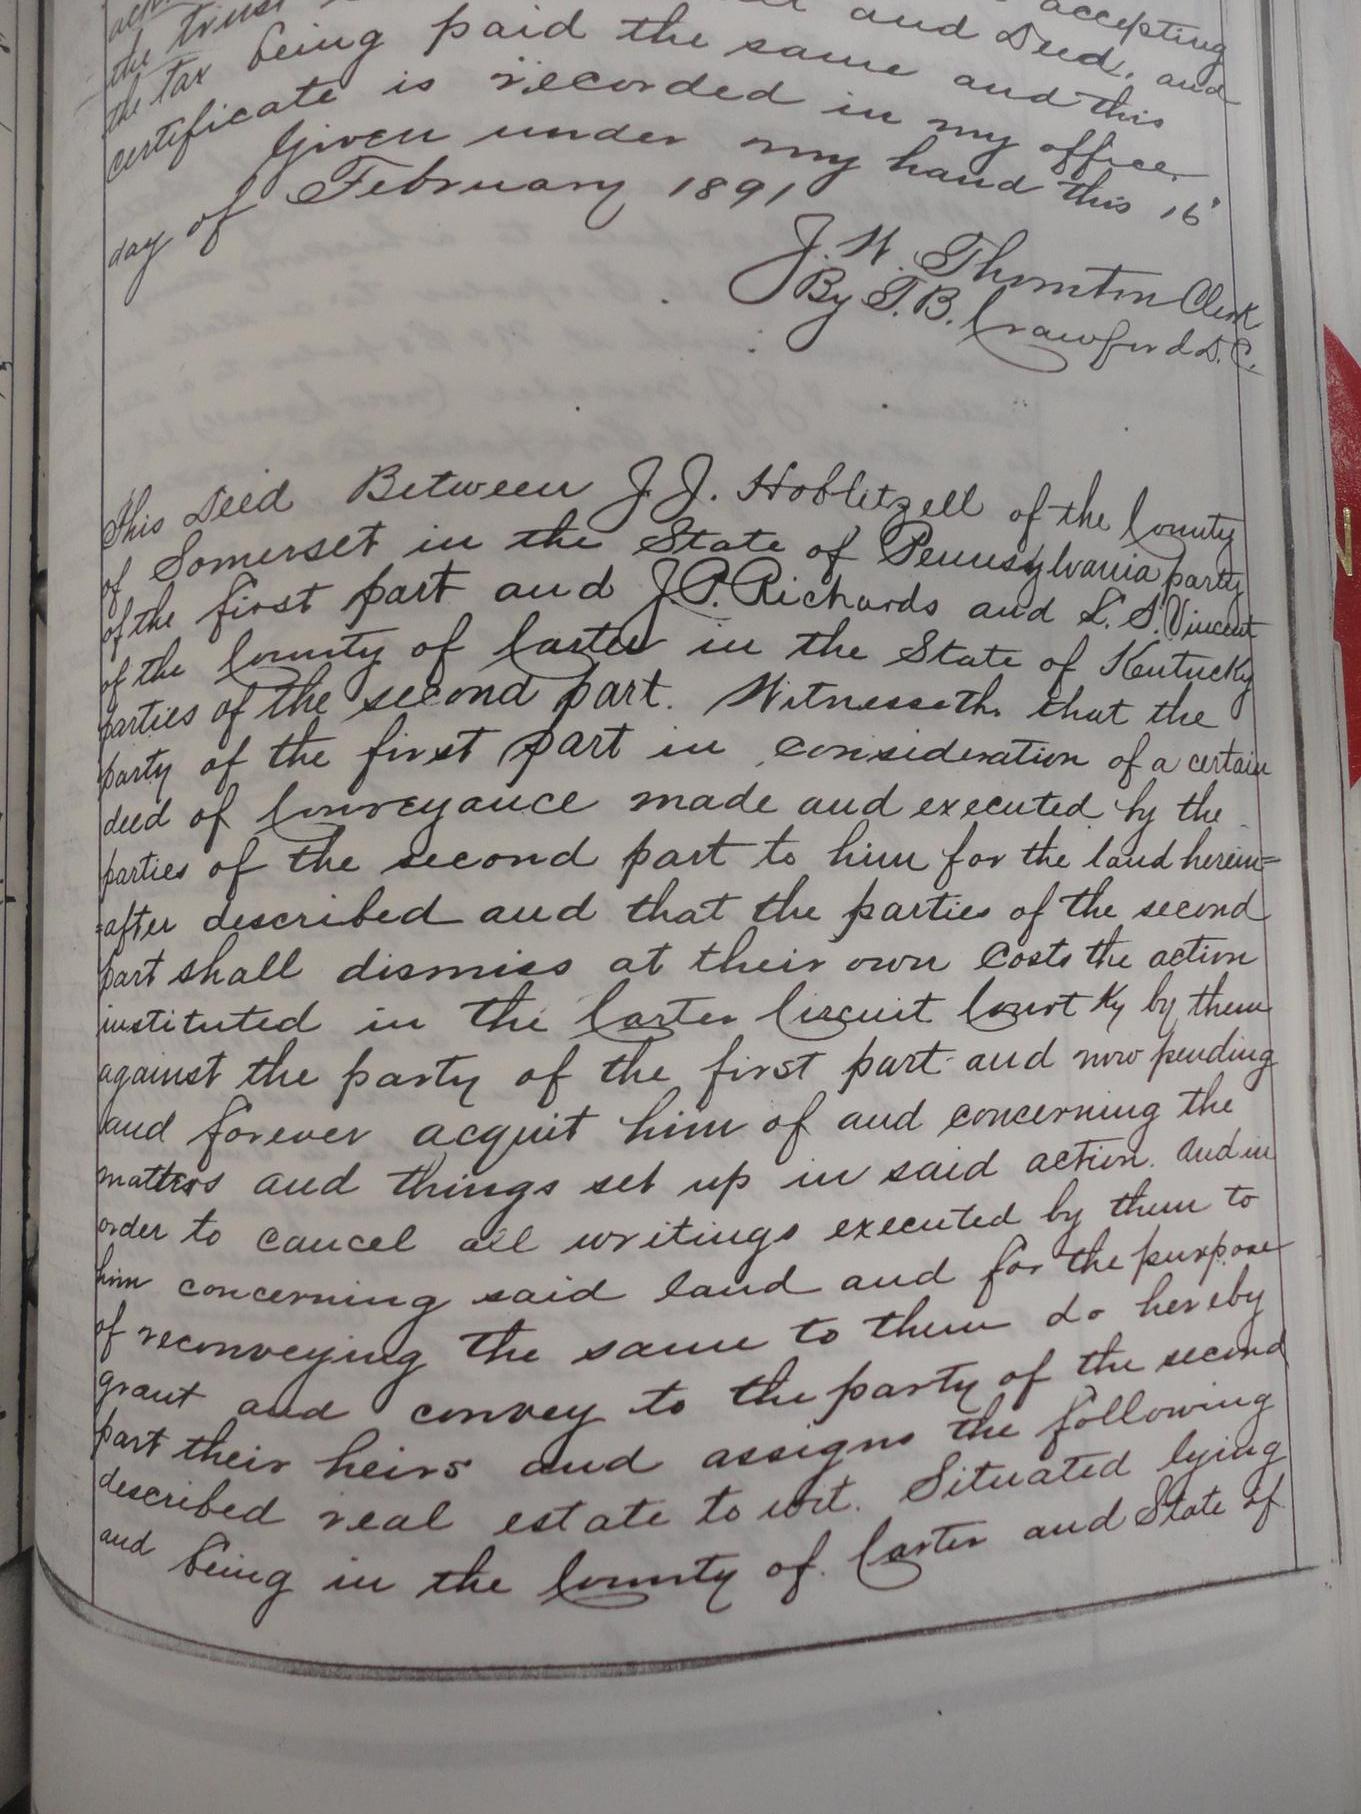 accepting
the trust and Deed, and
the tax being paid the same and this
certificate is recorded in my office.
Given under my hand this 16"
day of February 1891
J. W. Thornton Clerk
By T. B. Crawford D. C.
This Deed Between J. J. Hoblitzell of the County
of Somerset in the State of Pennsylvania party
of the first part and J. P. Richards and L. S. Vincent
of the County of Carter in the State of Kentucky
parties of the second part. Witnesseth that the
party of the first part in consideration of a certain
deed of Conveyance made and executed by the
parties of the second part to him for the land herein=
=after described and that the parties of the second
part shall dismiss at their own Costs the action
instituted in the Carter Circuit Court Ky by them
against the party of the first part and now pending
and forever acquit him of and concerning the
matters and things set up in said action. And in
order to cancel all writings executed by them to
him concerning said land and for the purpose
of reconveying the same to them do hereby
grant and convey to the party of the second
part their heirs and assigns the following
described real estate to wit. Situated lying
and being in the County of Carter and State of